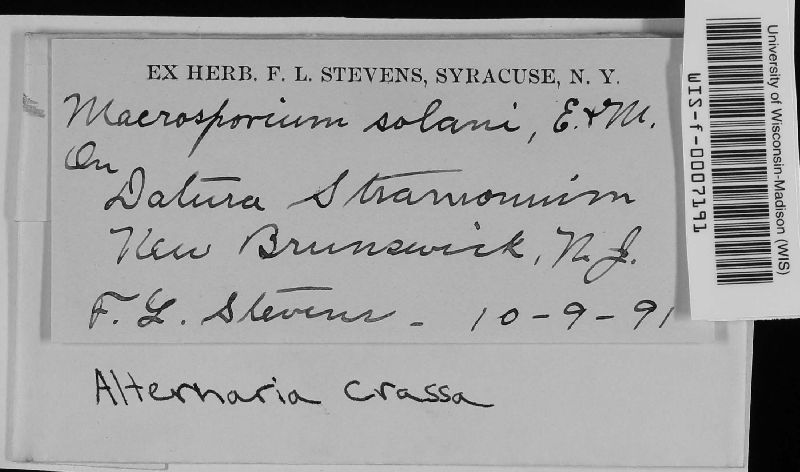 EX HERB. F. L. STEVENS, SYRACUSE, N. Y.
Macrosporium solani, E. & M.
On
Datura Stramonium
New Brunswick, N. J.
F. L. Stevens - 10-9-91
Alternaria crassa
University of Wisconsin-Madison (WIS)
WIS-f-0007191